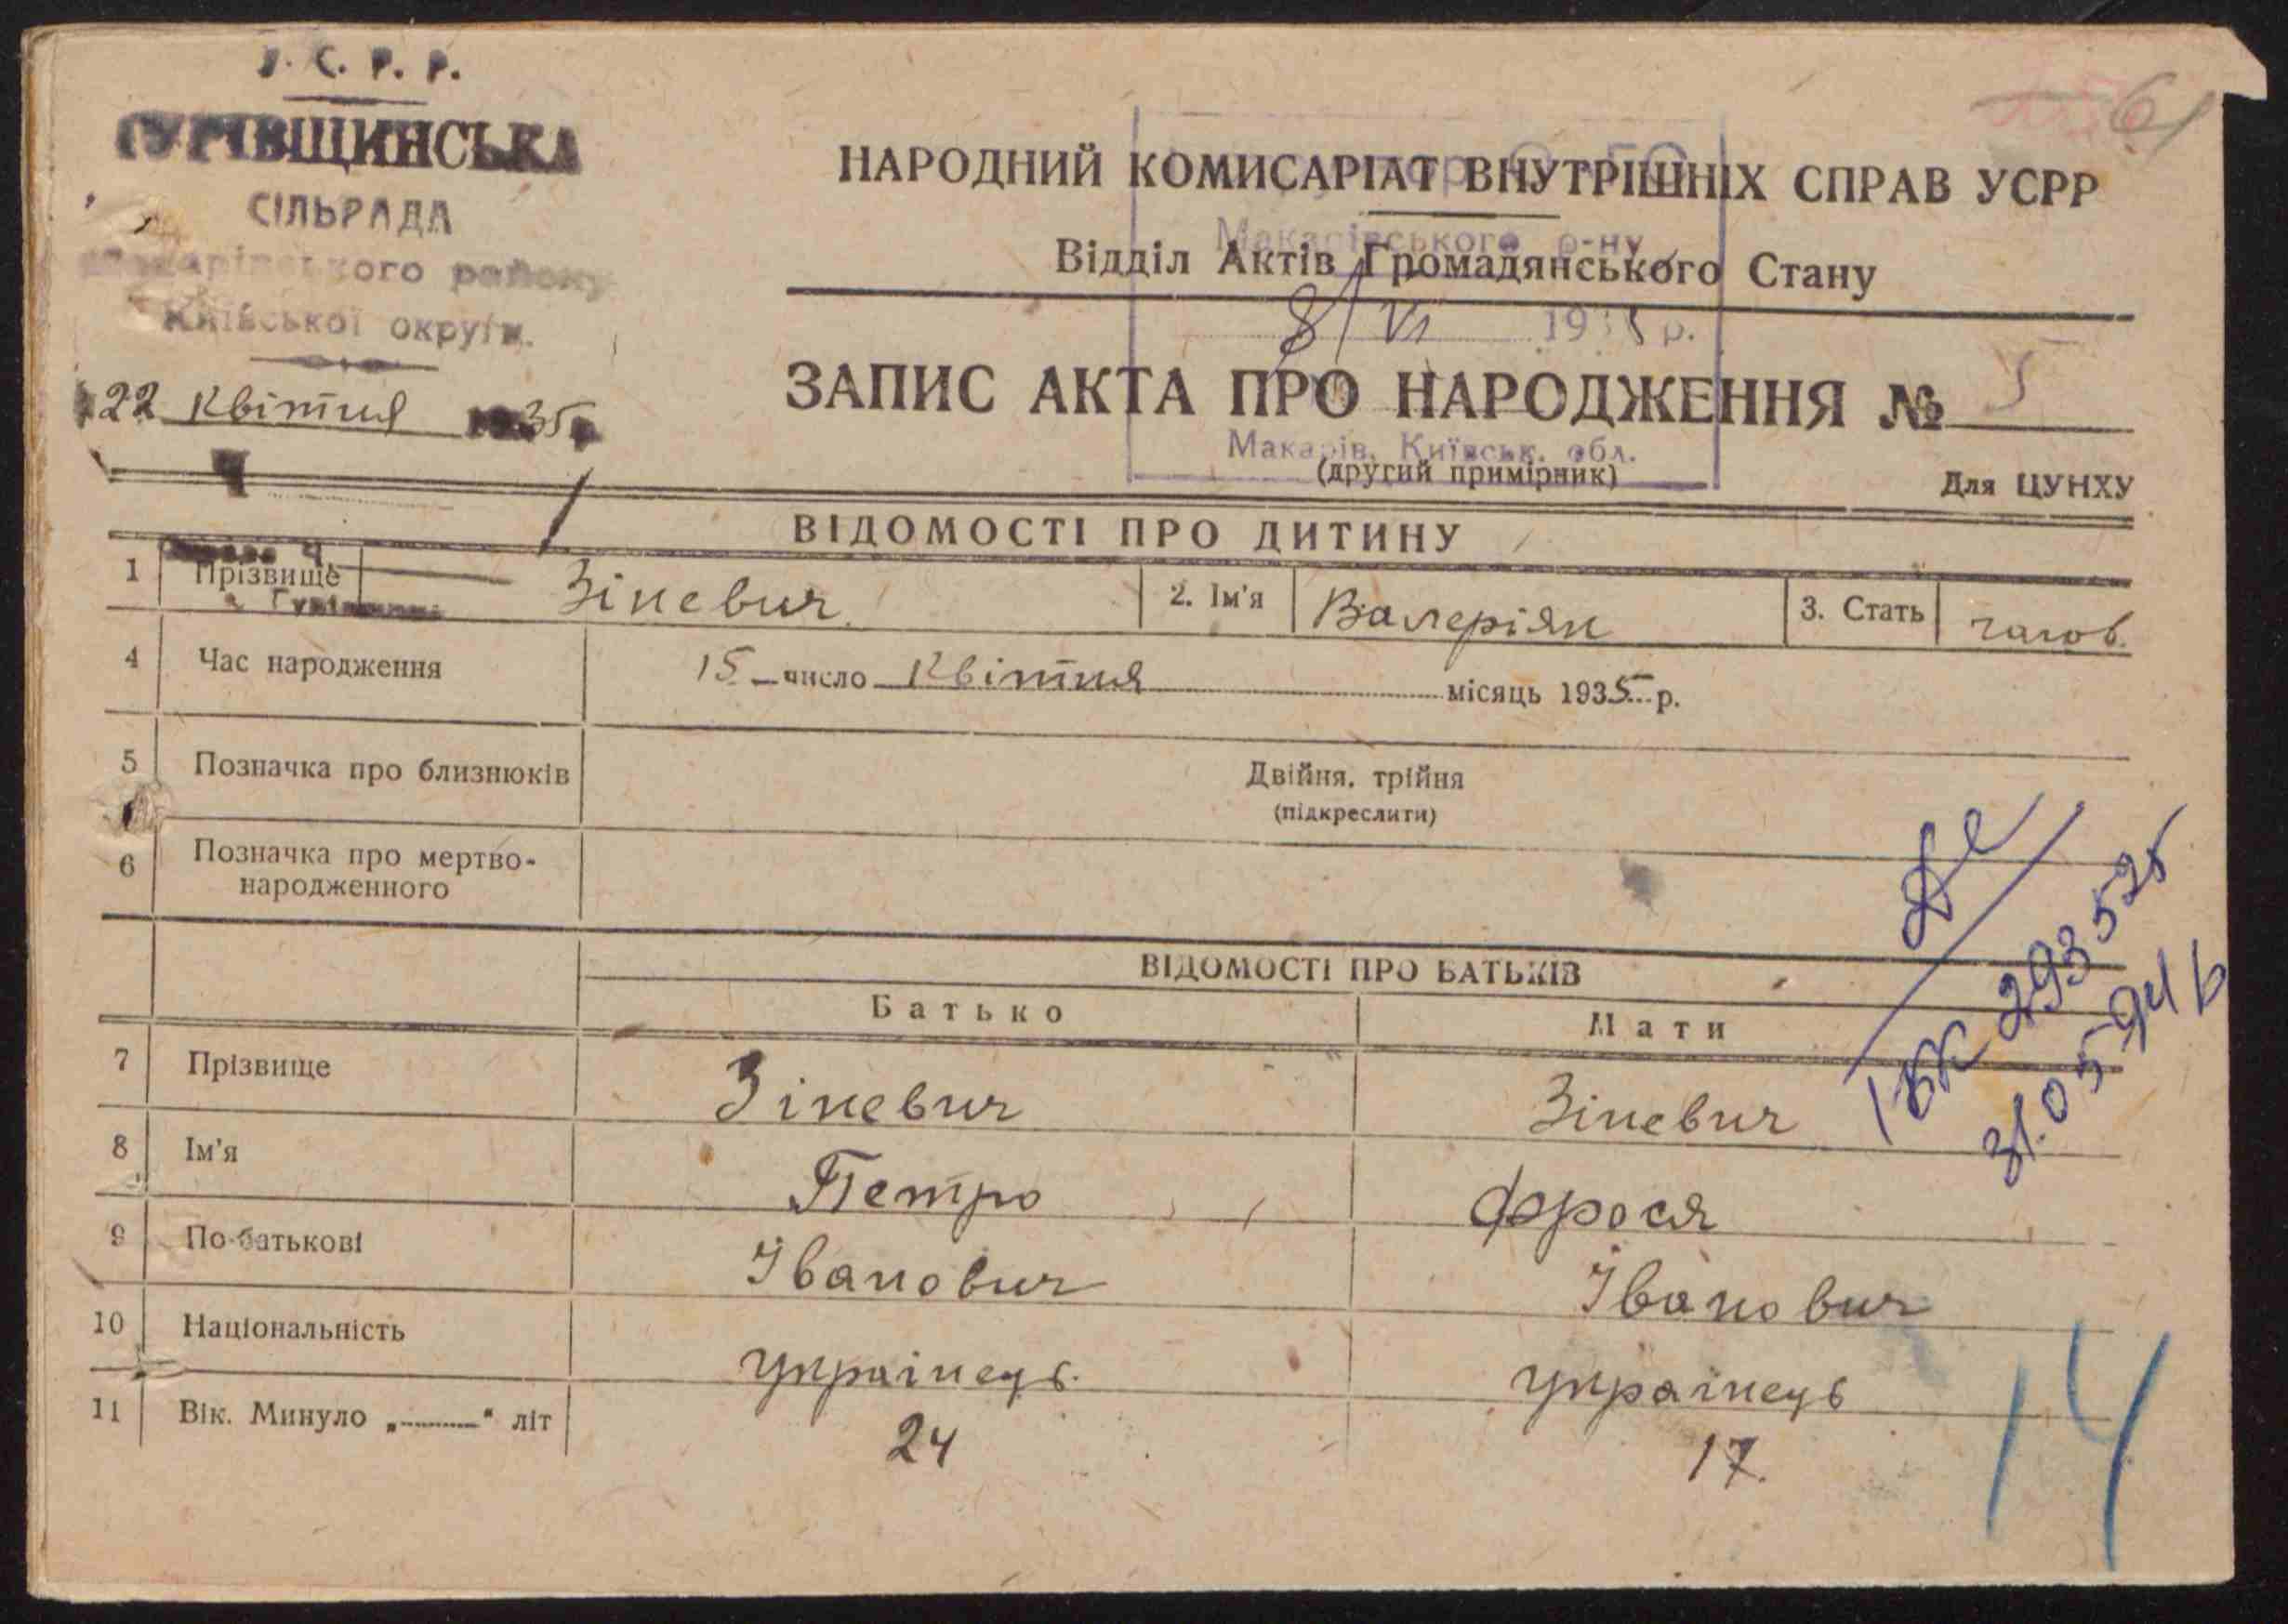 У. С. Р. Р.
ГУРІВЩИНСЬКА
СІЛЬРАДА
Макарівського району
Київської округи.
22 квітня 1935р
61
НАРОДНИЙ КОМИСАРІАТ ВНУТРІШНІХ СПРАВ УСРР
Відділ Актів Громадянського Стану
Макарівського р-ну
8/VI 1935 р.
ЗАПИС АКТА ПРО НАРОДЖЕННЯ № 5
Макарів, Київськ. обл.
(другий примірник)
Для ЦУНХУ
ВІДОМОСТІ ПРО ДИТИНУ
1 Прізвище Зіневич 2. Ім'я Валеріян 3. Стать чолов.
4 Час народження 15 число квітня місяць 1935 р.
5 Позначка про близнюків Двійня, трійня
(підкреслити)
6 Позначка про мертво-
народженного
ВІДОМОСТІ ПРО БАТЬКІВ
Батько Мати
7 Прізвище Зіневич Зіневич
8 Ім'я Петро Фрося
9 По-батькові Іванович Іванович
10 Національність українець. українець
11 Вік. Минуло „ " літ 24 17.
293525
31.05.94
14